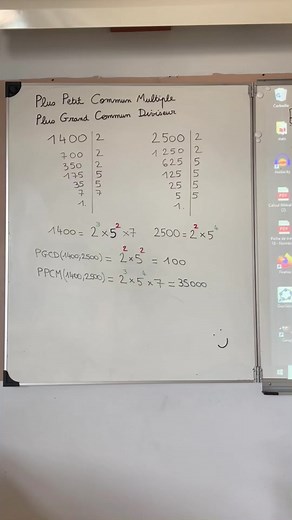 Plus Petit Commun Multiple
Plus Grand Commun Diviseur
1400 | 2
700 | 2
350 | 2
175 | 5
35 | 5
7 | 7
1
2500 | 2
1250 | 2
625 | 5
125 | 5
25 | 5
5 | 5
1
1400 = 2³ × 5² × 7 2500 = 2² × 5⁴
PGCD(1400;2500) = 2² × 5² = 100
PPCM(1400;2500) = 2³ × 5⁴ × 7 = 35000
:)